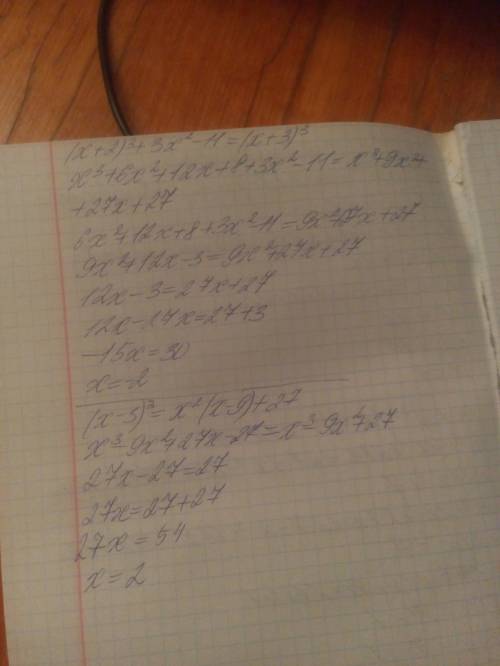 (x+2)³+3x²-11=(x+3)³
x³+6x²+12x+8+3x²-11=x³+9x²+
+27x+27
6x²+12x+8+3x²-11=9x²+27x+27
9x²+12x-3=9x²+27x+27
12x-3=27x+27
12x-27x=27+3
-15x=30
x=-2
(x-3)³=x²(x-9)+27
x³-9x²+27x-27=x³-9x²+27
27x-27=27
27x=27+27
27x=54
x=2